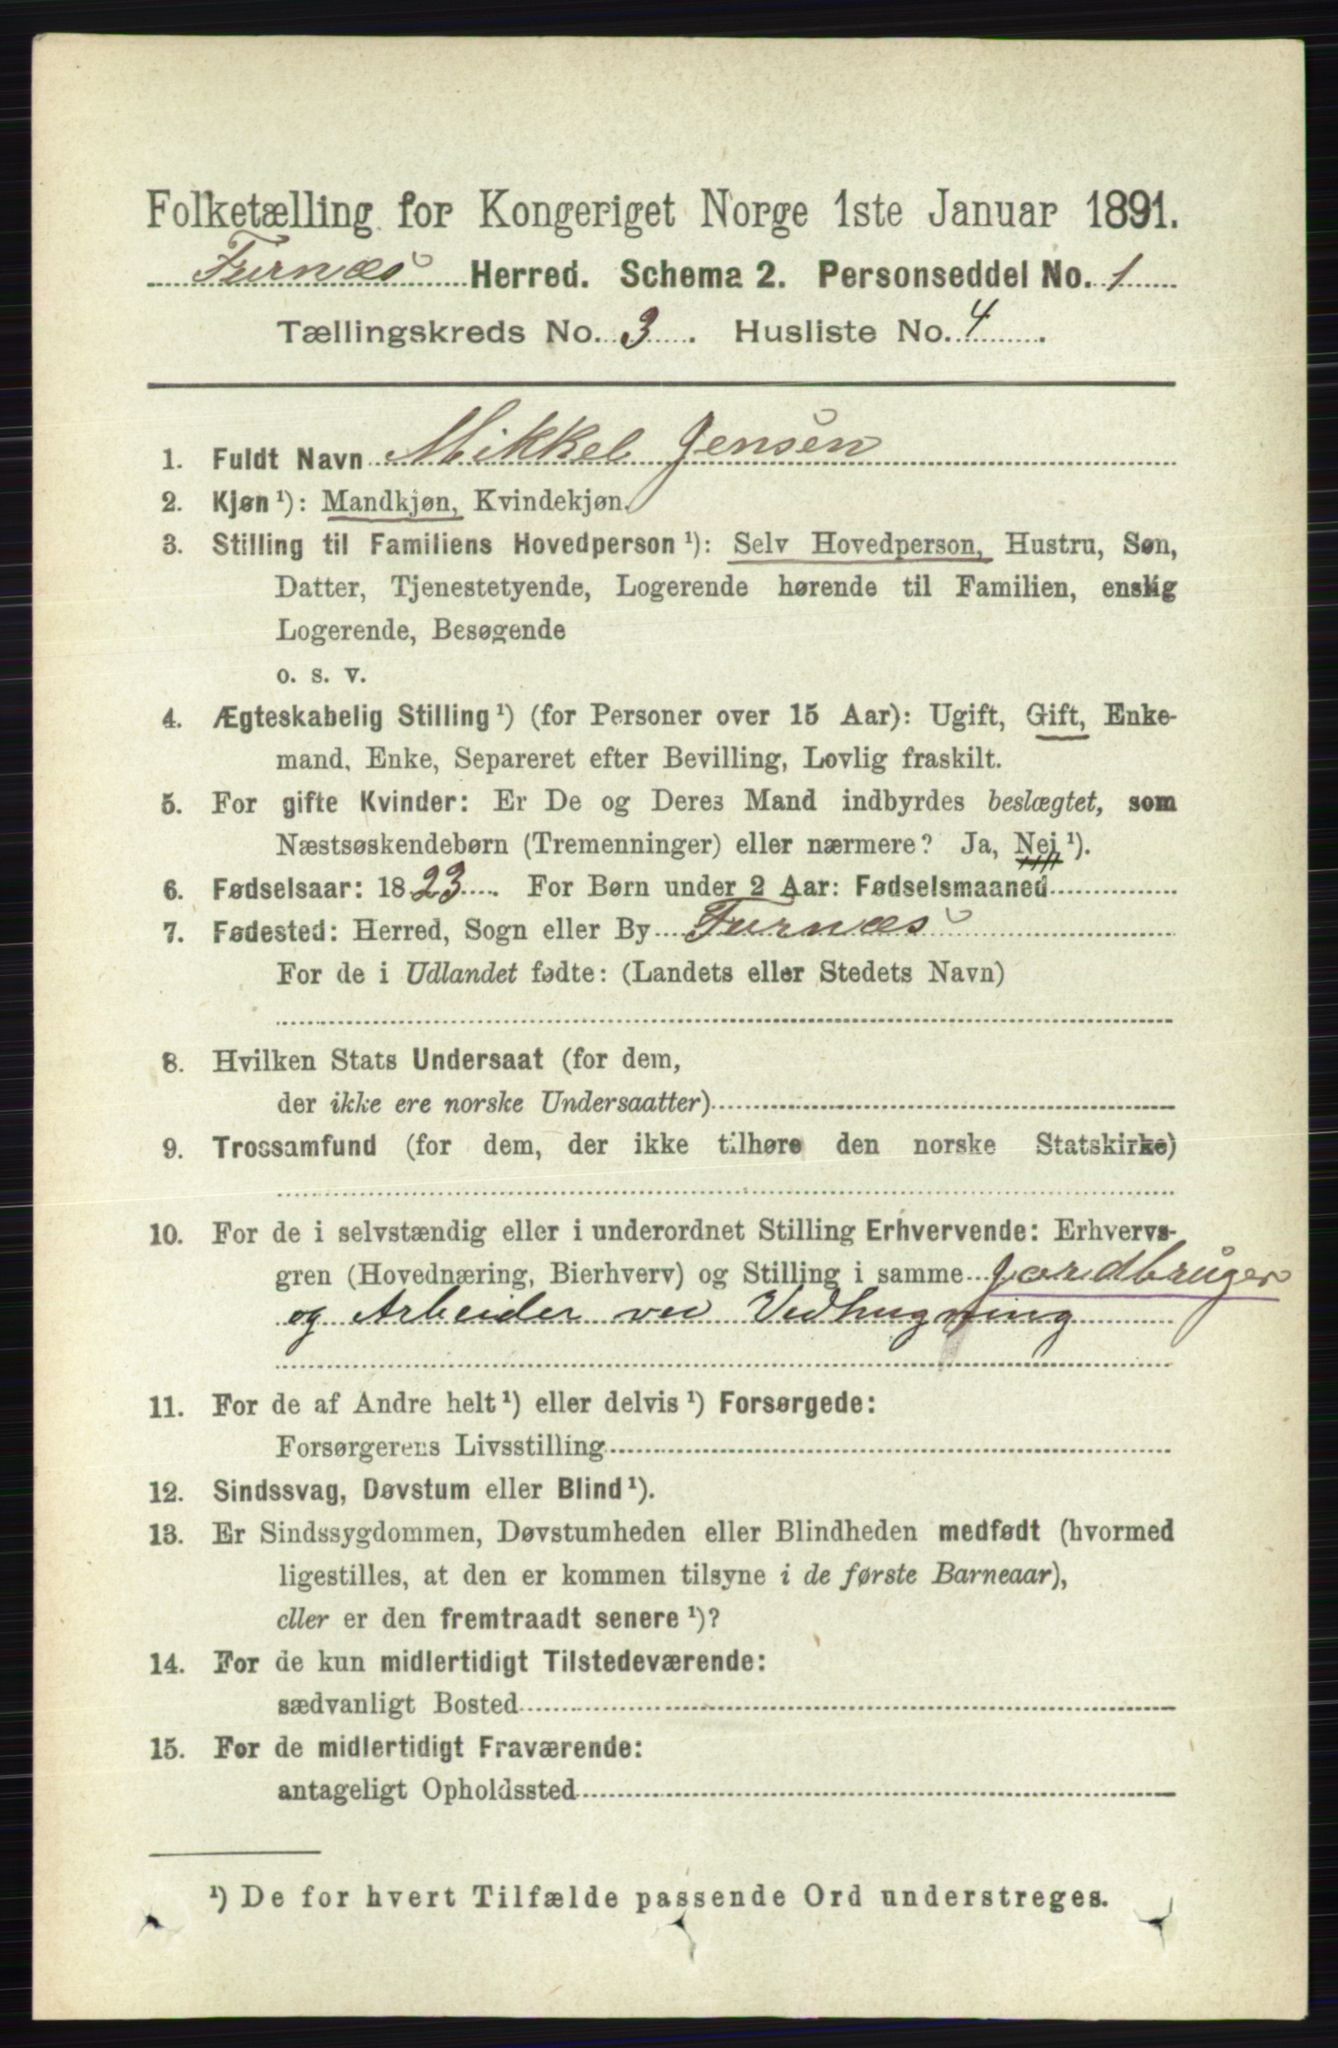 Folketælling for Kongeriget Norge 1ste Januar 1891.
Furnæs Herred. Schema 2. Personseddel No. 1
Tællingskreds No. 3. Husliste No. 4.
1. Fuldt Navn Mikkel Jensen
2. Kjøn ¹): Mandkjøn, Kvindekjøn.
3. Stilling til Familiens Hovedperson ¹): Selv Hovedperson, Hustru, Søn,
Datter, Tjenestetyende, Logerende hørende til Familien, enslig
Logerende, Besøgende
o. s. v.
4. Ægteskabelig Stilling ¹) (for Personer over 15 Aar): Ugift, Gift, Enke-
mand, Enke, Separeret efter Bevilling, Lovlig fraskilt.
5. For gifte Kvinder: Er De og Deres Mand indbyrdes beslægtet, som
Næstsøskendebørn (Tremenninger) eller nærmere? Ja, Nej ¹).
6. Fødselsaar: 1823. For Børn under 2 Aar: Fødselsmaaned
7. Fødested: Herred, Sogn eller By Furnæs
For de i Udlandet fødte: (Landets eller Stedets Navn)
8. Hvilken Stats Undersaat (for dem,
der ikke ere norske Undersaatter)
9. Trossamfund (for dem, der ikke tilhøre den norske Statskirke)
10. For de i selvstændig eller i underordnet Stilling Erhvervende: Erhvervs-
gren (Hovednæring, Bierhverv) og Stilling i samme Jordbruger
og Arbeider ved Vedhugning
11. For de af Andre helt ¹) eller delvis ¹) Forsørgede:
Forsørgerens Livsstilling
12. Sindssvag, Døvstum eller Blind ¹).
13. Er Sindssygdommen, Døvstumheden eller Blindheden medfødt (hvormed
ligestilles, at den er kommen tilsyne i de første Barneaar),
eller er den fremtraadt senere ¹)?
14. For de kun midlertidigt Tilstedeværende:
sædvanligt Bosted
15. For de midlertidigt Fraværende:
antageligt Opholdssted
¹) De for hvert Tilfælde passende Ord understreges.